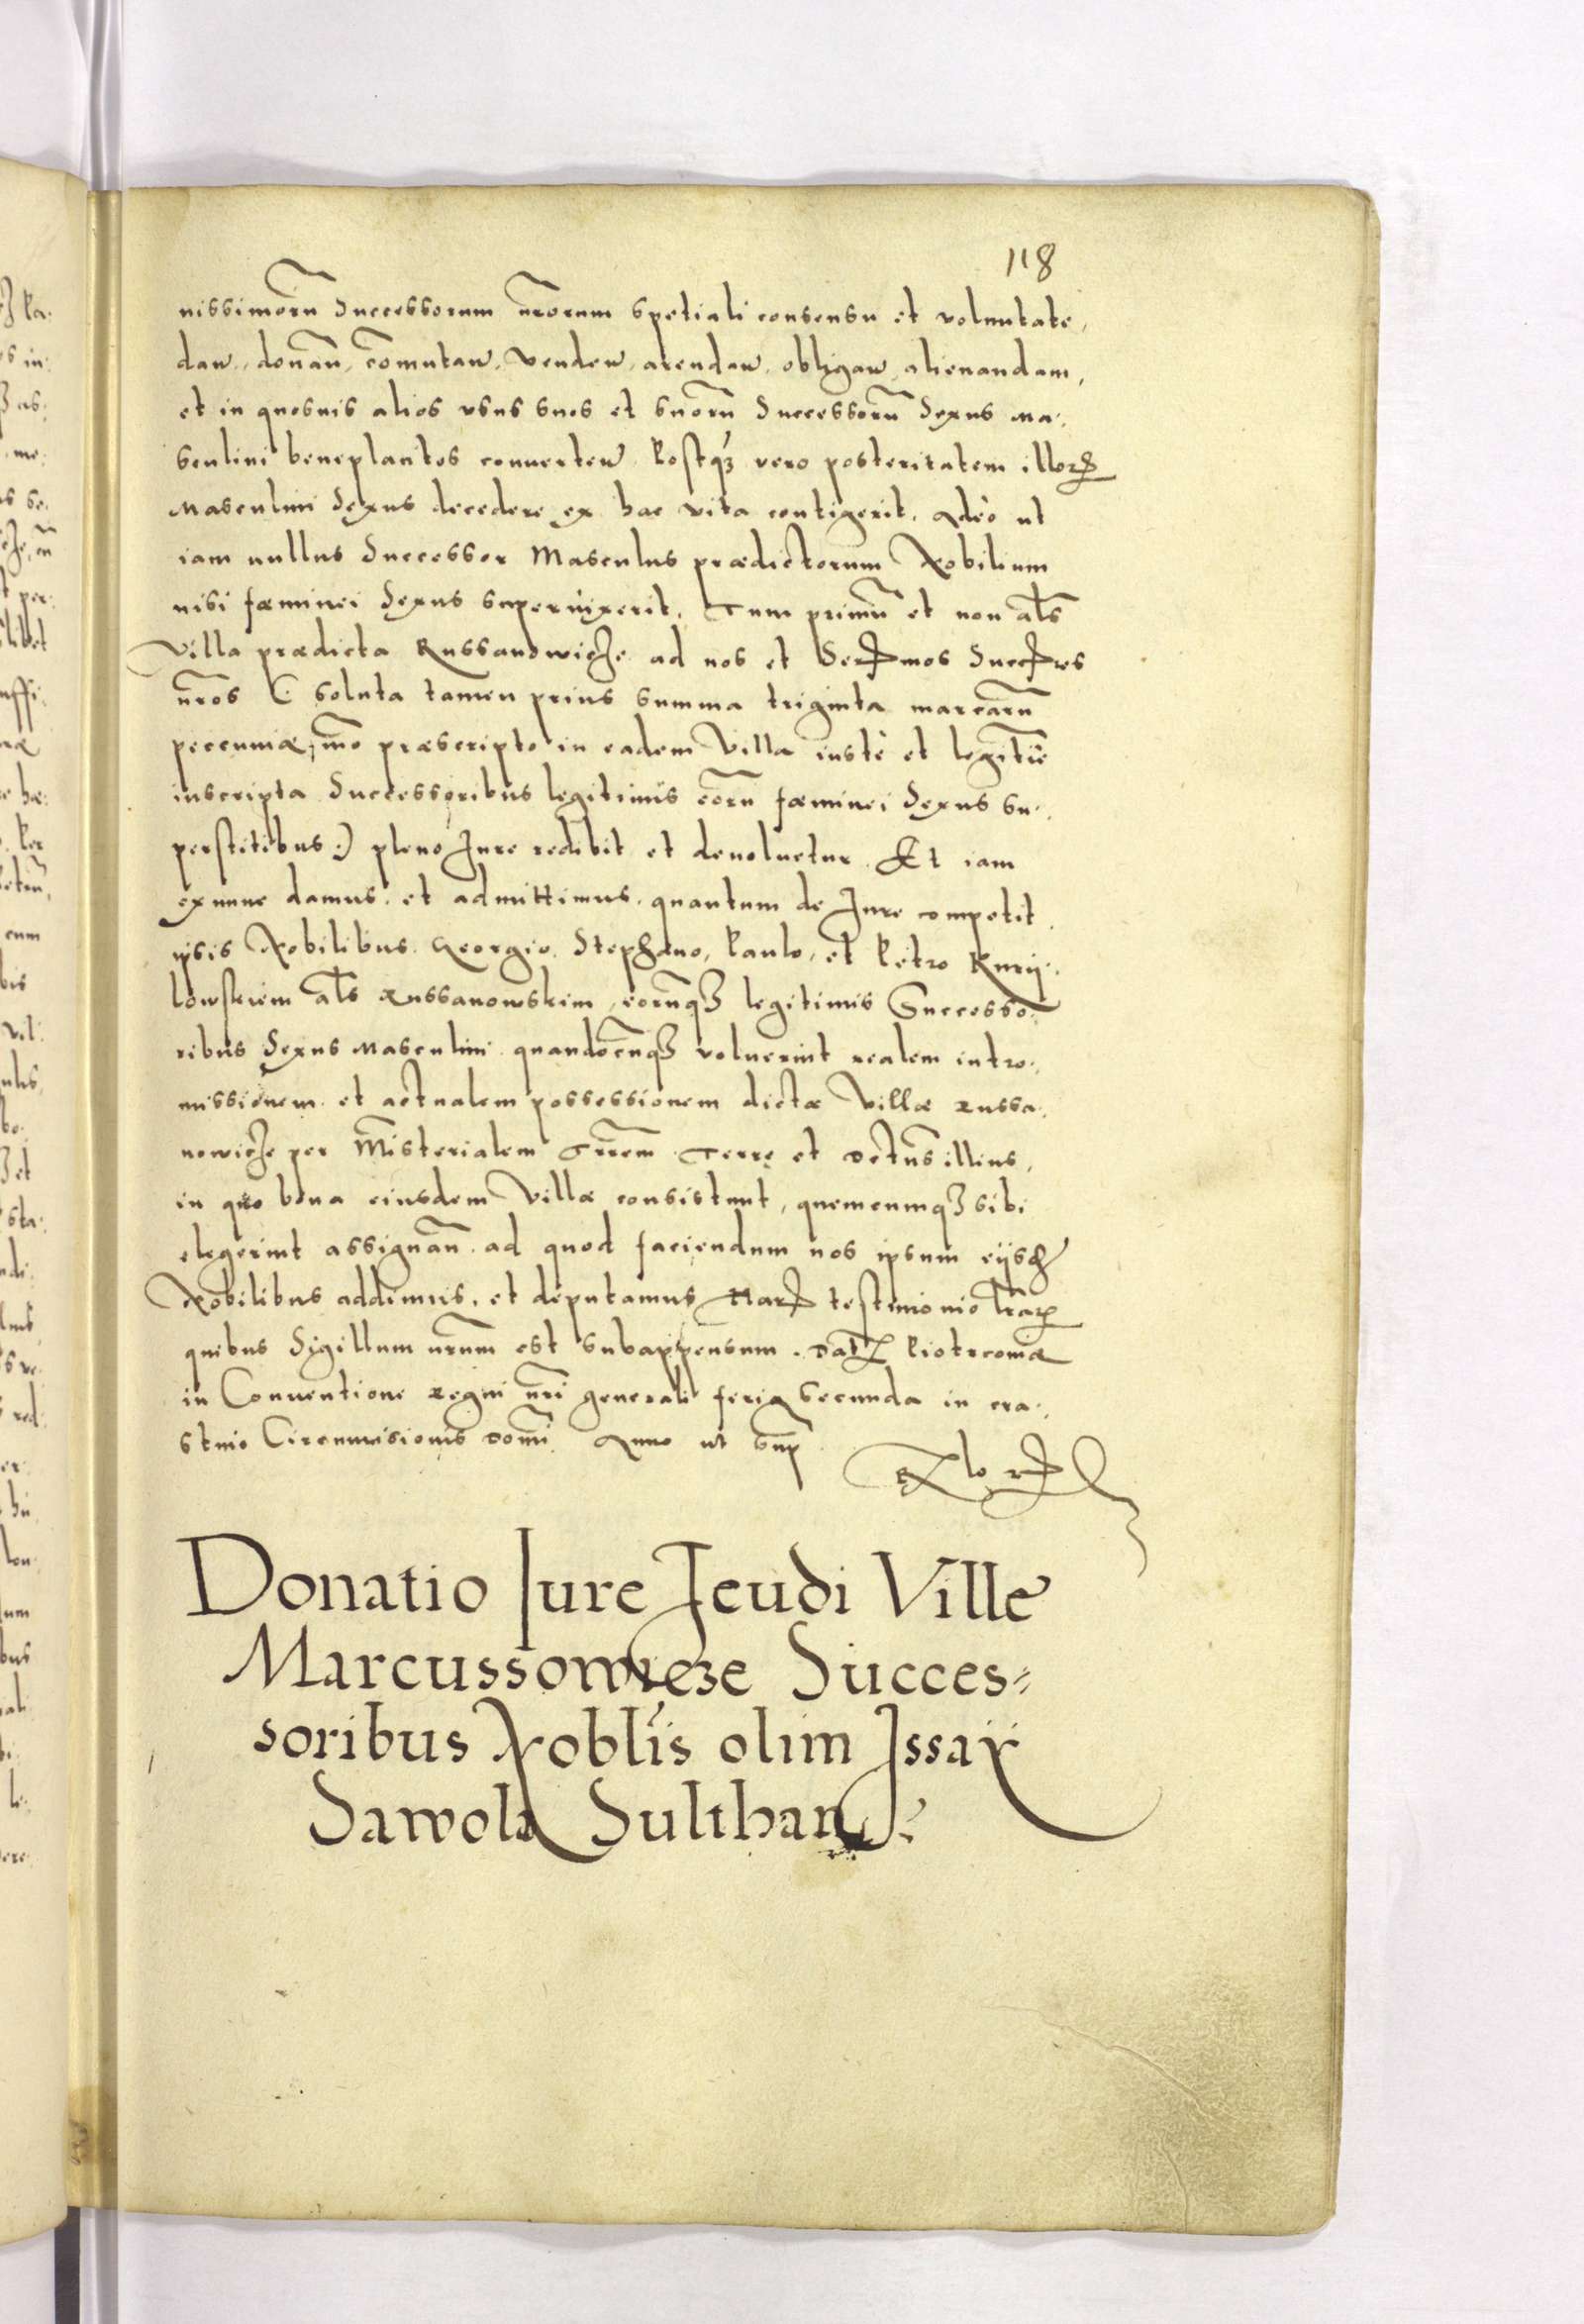 118
nissimorũ Successorum nr̃orum spetiali consensu et voluntate,
dan̄, donan̄, com̃utan̄, venden̄, arendan̄, obligan̄, alienandam,
et in quosuis alios vsus suos et suorũ Successorũ Sexus ma:
sculini beneplacitos conuerten̄. Postqꝫ vero posteritatem illorꝝ
Masculini Sexus decedere ex hac vita contigerit, Adeò ut
iam nullus Successor Masculus prædictorum Nobilium
nisi fæminei Sexus superuixerit, Tum primũ et non al̃s
Villa prædicta Russanowicze ad nos et Sermos Succres
nr̃os (: soluta tamen prius summa triginta marcarũ
peccuniæ, mõ præscripto in eadem Villa iustè et legitimè
inscripta Successoribus legitimis eorũ fæminei Sexus su:
perstitibus :) pleno Jure redibit et deuoluetur. Et iam
exnunc damus, et admittimus, quantum de Jure competit
ipsis Nobilibus Georgio, Stephano, Paulo, et Petro Kurij:
lowskim al̃s Russanowskim, eorũqꝫ legitimis Successo:
ribus Sexus Masculini quandocũqꝫ voluerint realem intro:
missionem et actualem possessionem dictæ Villæ Russa:
nowicze per Mĩsterialem Trr̃em Terrę et Dctus̃ illius,
in quo bona eiusdem Villæ consistunt, quemcumqꝫ sibi
elegerint assignan̄. ad quod faciendum nos ipsum eijsdẽ
Nobilibus addimus, et deputamus Harꝝ testimonio lr̃arꝝ
quibus Sigillum nr̃um est subappensum. Dat̃ Piotrcomæ
in Conuentione Regni nr̃i generali feria secunda in cra:
stino Circumcisionis Domĩ Anno ut sup̃
Donatio Jure Feudi Ville
Marcussowcze Succes=
soribus Nobl̃is olim Jssaẏ
Sawola Sulthan